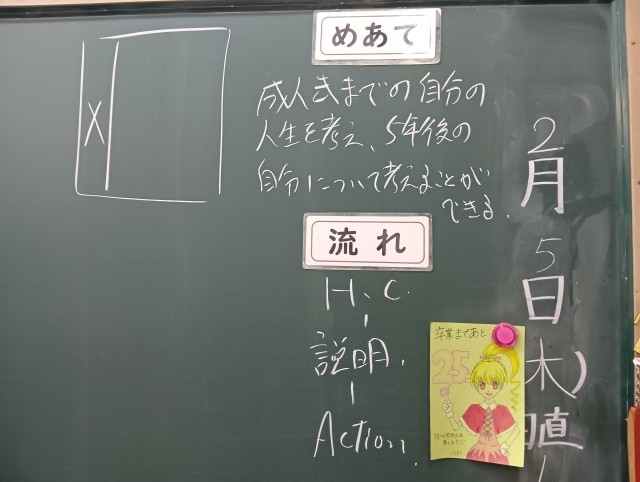 2月5日木)
めあて
成人式までの自分の
人生を考え、5年後の
自分について考えることが
できる.
流れ
H、C.
説明.
Action.
卒業まであと
25
X